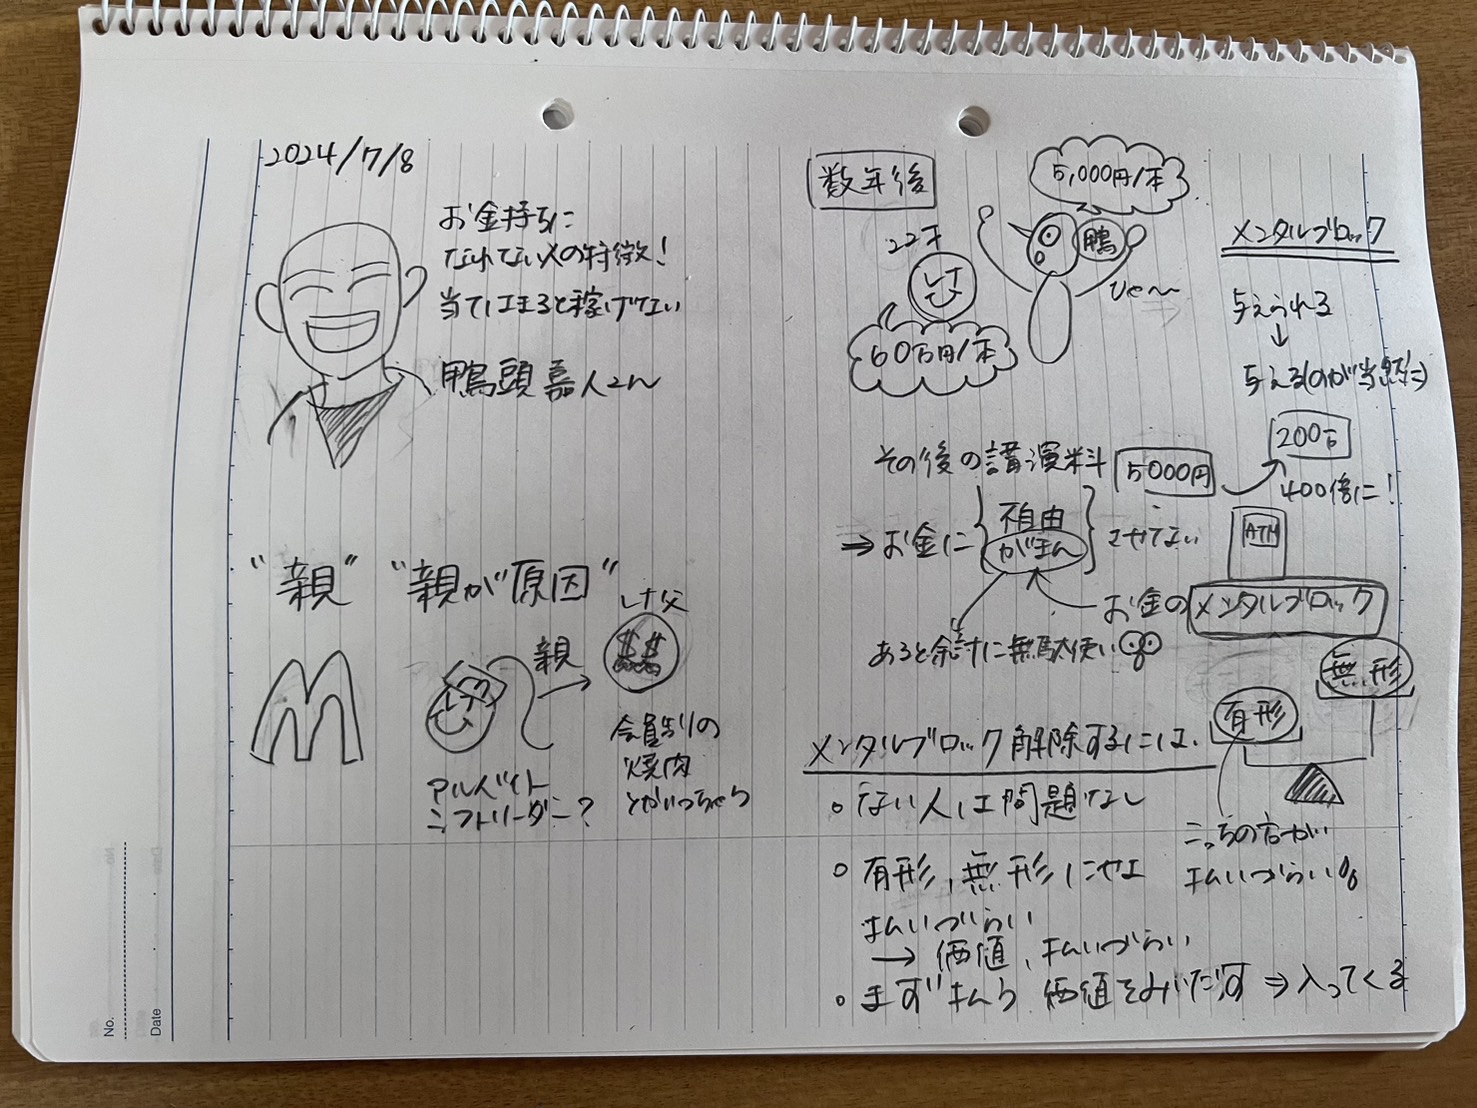 2024/7/8
お金持ちに
なれない人の特徴!
当てはまると稼げない
鴨頭嘉人さん
"親" "親が原因"
父
親
$$
M
会員制の
焼肉
とかいっちゃう
アルバイト
シフトリーダー?
数年後
5,000円/本
鴨
22才
60万円/本
メンタルブロック
与えられる
↓
与える(のが当然に)
その後の講演料 5000円
200万
400倍に!
⇒お金に 不自由
がまん
させてない
ATM
お金のメンタルブロック
あると余計に無駄使い
無形
有形
メンタルブロック解除するには、
こっちの方がい
払いづらい%
○ない人は問題なし
○有形、無形にせよ
払いづらい
→価値、払いづらい
○まず払う 価値をみいだす⇒入ってくる
No.
Date